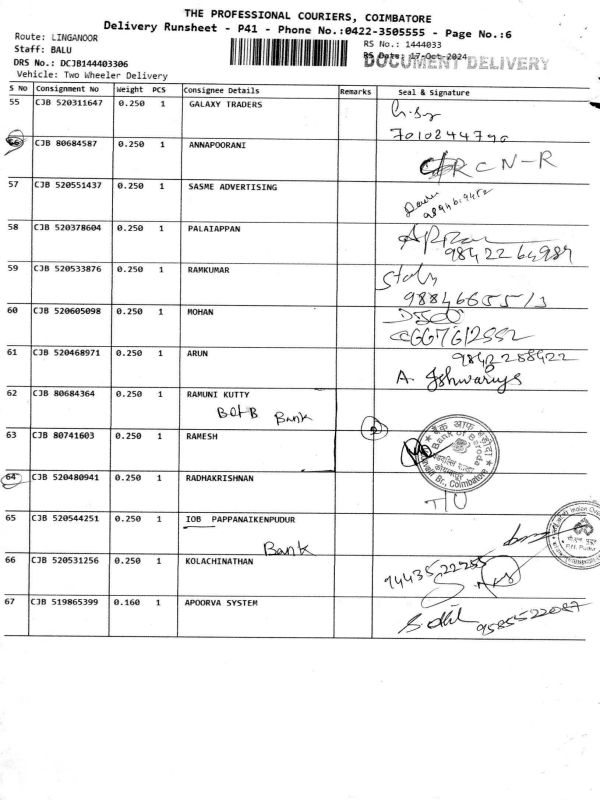 THE PROFESSIONAL COURIERS, COIMBATORE
Delivery Runsheet - P41 - Phone No.:0422-3505555 - Page No.:6
Route: LINGANOOR
Staff: BALU
DRS No.: DCJB144403306
Vehicle: Two Wheeler Delivery
RS No.: 1444033
RS Date: 17-Oct-2024
DOCUMENT DELIVERY
S No Consignment No Weight PCS Consignee Details Remarks Seal & Signature
55 CJB 520311647 0.250 1 GALAXY TRADERS
7010244790
66 CJB 80684587 0.250 1 ANNAPOORANI
RCN-R
57 CJB 520551437 0.250 1 SASME ADVERTISING
58 CJB 520378604 0.250 1 PALAIAPPAN
9842264984
59 CJB 520533876 0.250 1 RAMKUMAR
60 CJB 520605098 0.250 1 MOHAN
61 CJB 520468971 0.250 1 ARUN
9842288422
A. Ishwariya
62 CJB 80684364 0.250 1 RAMUNI KUTTY
BOB Bank
2
63 CJB 80741603 0.250 1 RAMESH
बैंक ऑफ़ बड़ौदा
Bank of Baroda
Br., Coimbatore
64 CJB 520480941 0.250 1 RADHAKRISHNAN
65 CJB 520544251 0.250 1 IOB PAPPANAIKENPUDUR
Bank
Indian
P.N. Pudur
66 CJB 520531256 0.250 1 KOLACHINATHAN
9443522255
67 CJB 519865399 0.160 1 APOORVA SYSTEM
9585522087